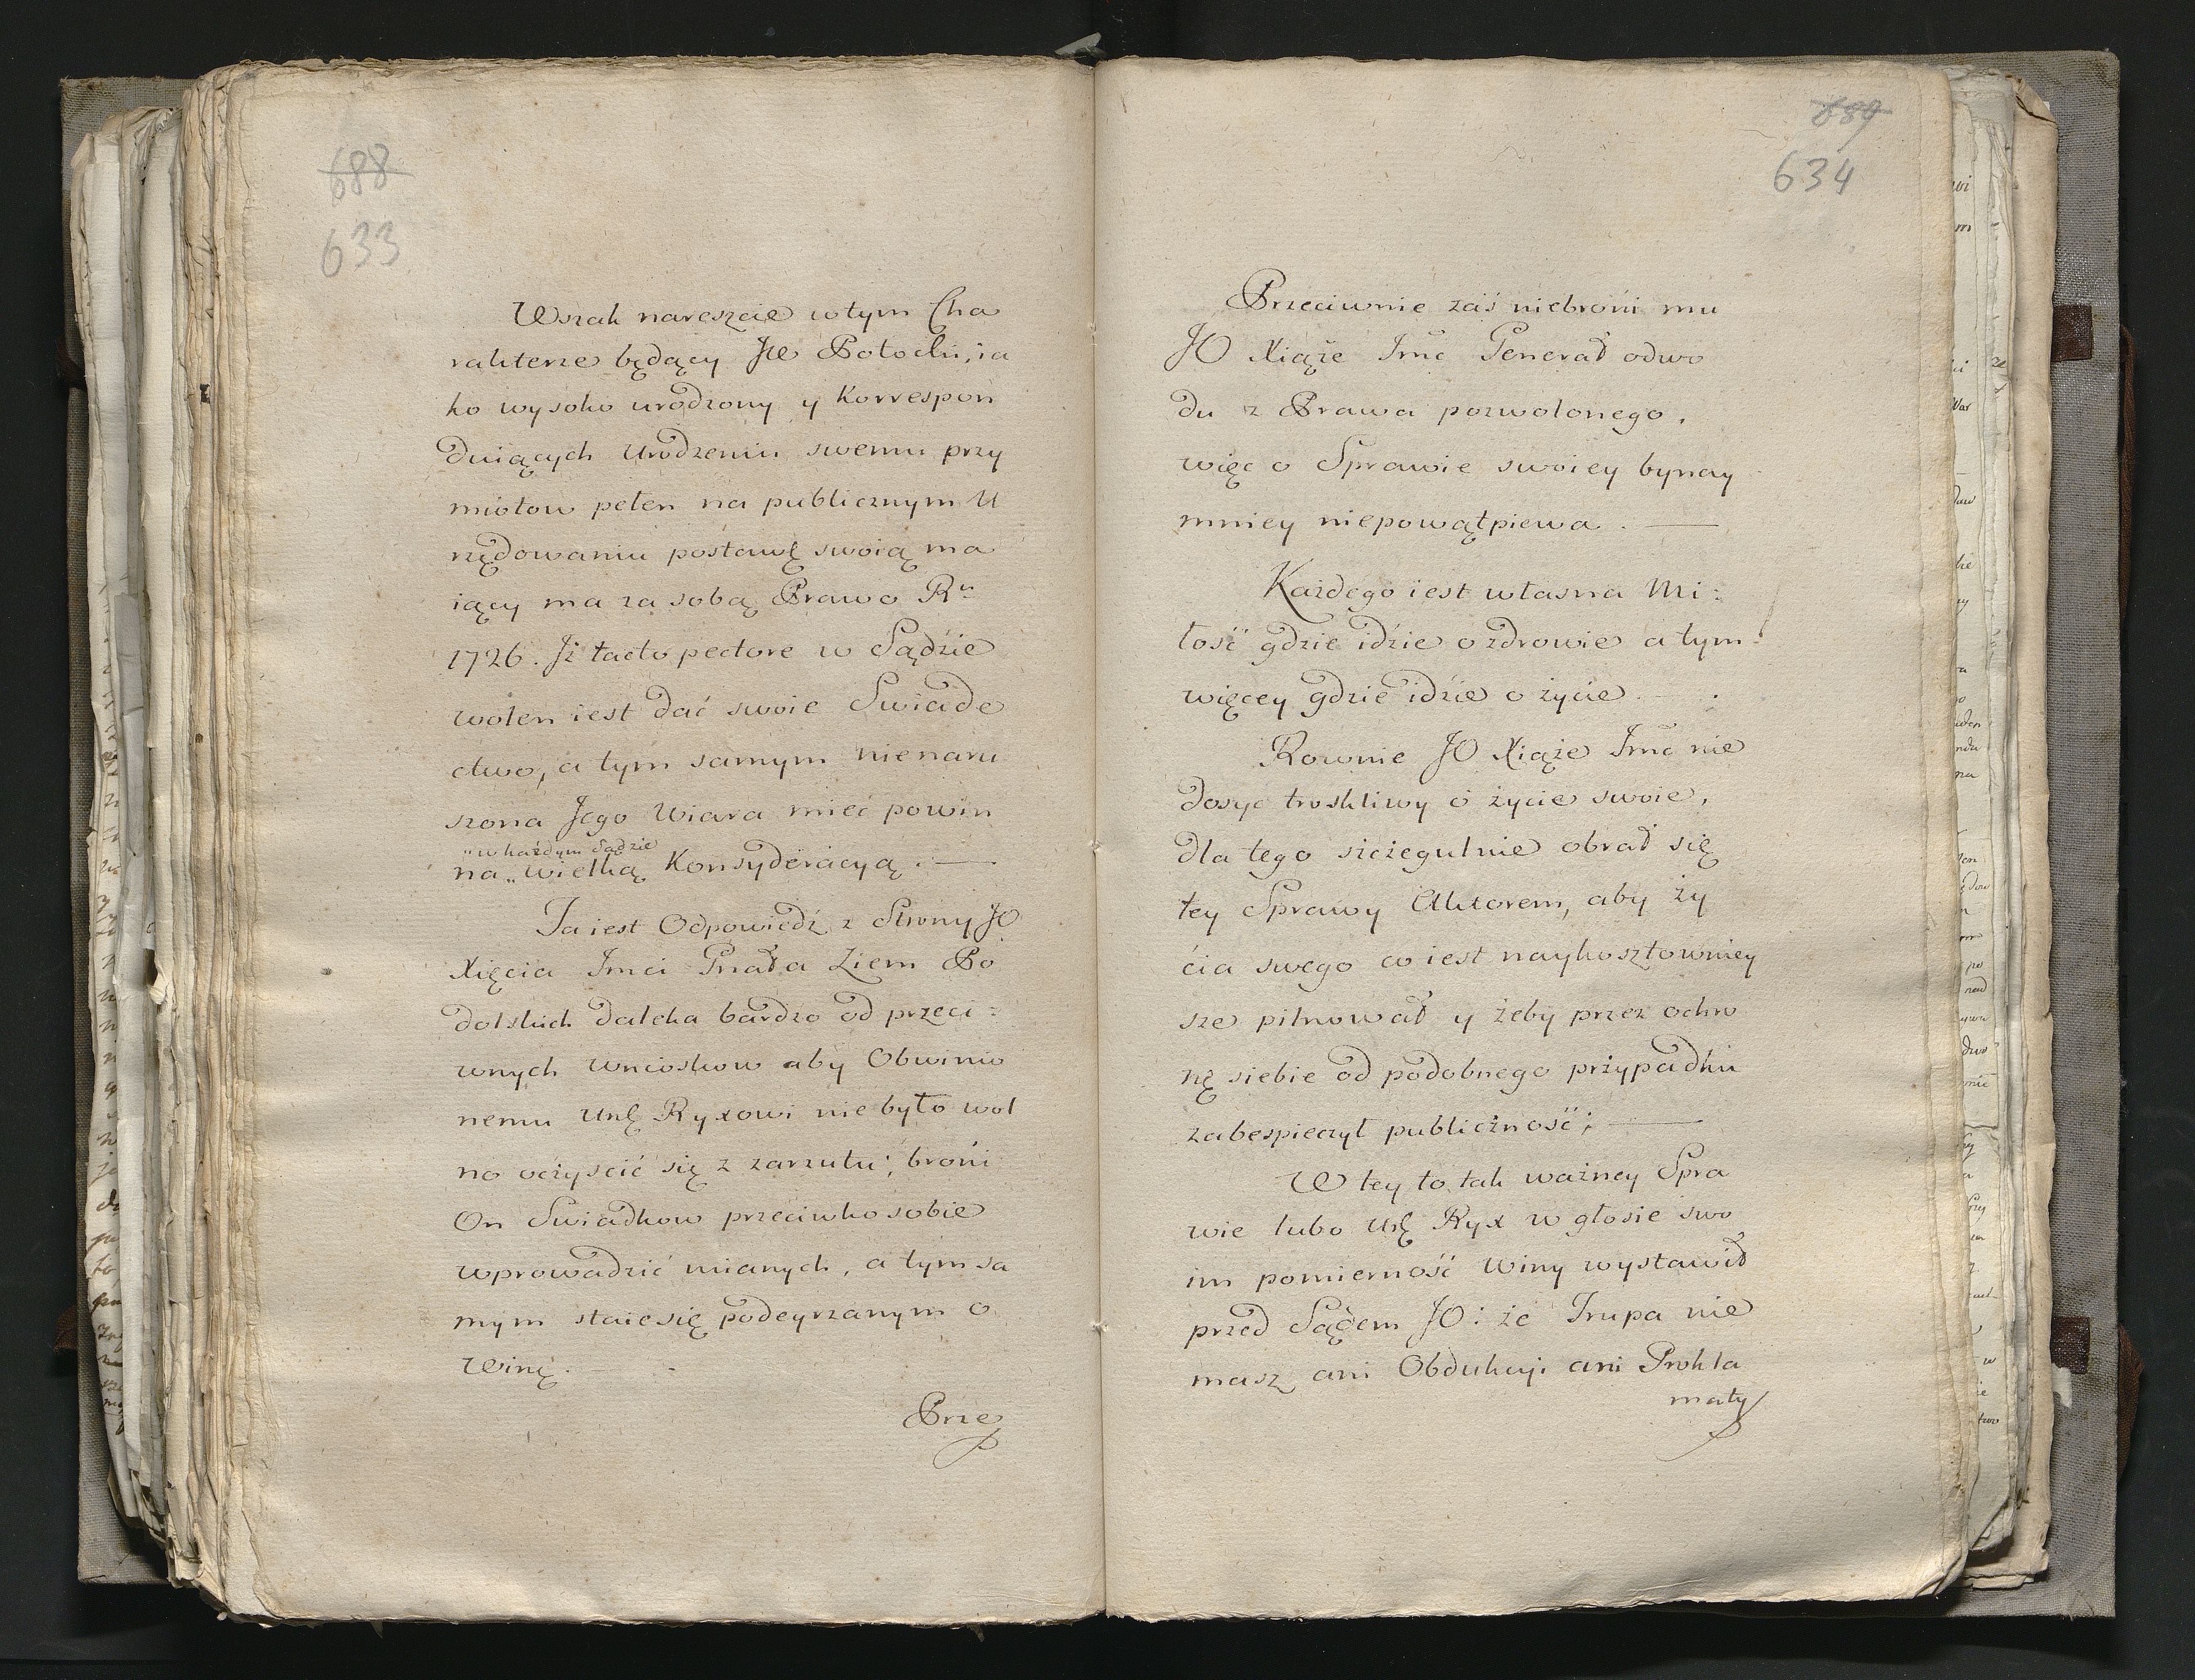 688
633
Wszak nareszcie w tym Cha
rakterze będący JW Potocki, ia
ko wysoko urodzony y Korrespon
duiących Urodzeniu swemu przy
miotow pełen na publicznym U
rzędowaniu postawę swoią ma
iący ma za sobą Prawo Ru
1726. Iż tacto pectore w Sądzie
wolen iest dać swoie Swiade
ctwo, a tym samym nienaru
szona Jego Wiara mieć powin
"w każdym Sądzie
na " wielką Konsyderacyą. —
Ta iest Odpowiedź z Strony JO
Xięcia Imci Gnała Ziem Po
dolskich daleka bardzo od przeci:
wnych Wnioskow aby Obwinio
nemu Urę Ryxowi nie było wol
no oczyscić się z zarzutu; broni
On Swiadkow przeciwko sobie
wprowadzić mianych, a tym sa
mym staie się podeyrzanym o
Winę. —
Prze
689
634
Przeciwnie zaś niebroni mu
JO Xiąże Imć Generał odwo
du z Prawa pozwolonego,
więc o Sprawie swoiey bynay
mniey niepowątpiewa. —
Każdego iest własna Mi:
łość gdzie idzie o zdrowie a tym:
więcey gdzie idzie o życie.
Rownie JO Xiąże Imć nie
dosyc troskliwy o życie swoie,
dla tego szczegulnie obrał się
tey Sprawy Aktorem, aby ży
ćia swego co iest naykosztowniey
sze pilnował y żeby przez ochro
nę siebie od podobnego przypadku
zabespieczył publiczność; —
W tey to tak ważney Spra
wie lubo Urę Ryx w głosie swo
im pomierność Winy wystawił
przed Sądem JO: że Trupa nie
masz ani Obdukcyi ani Prokla
maty